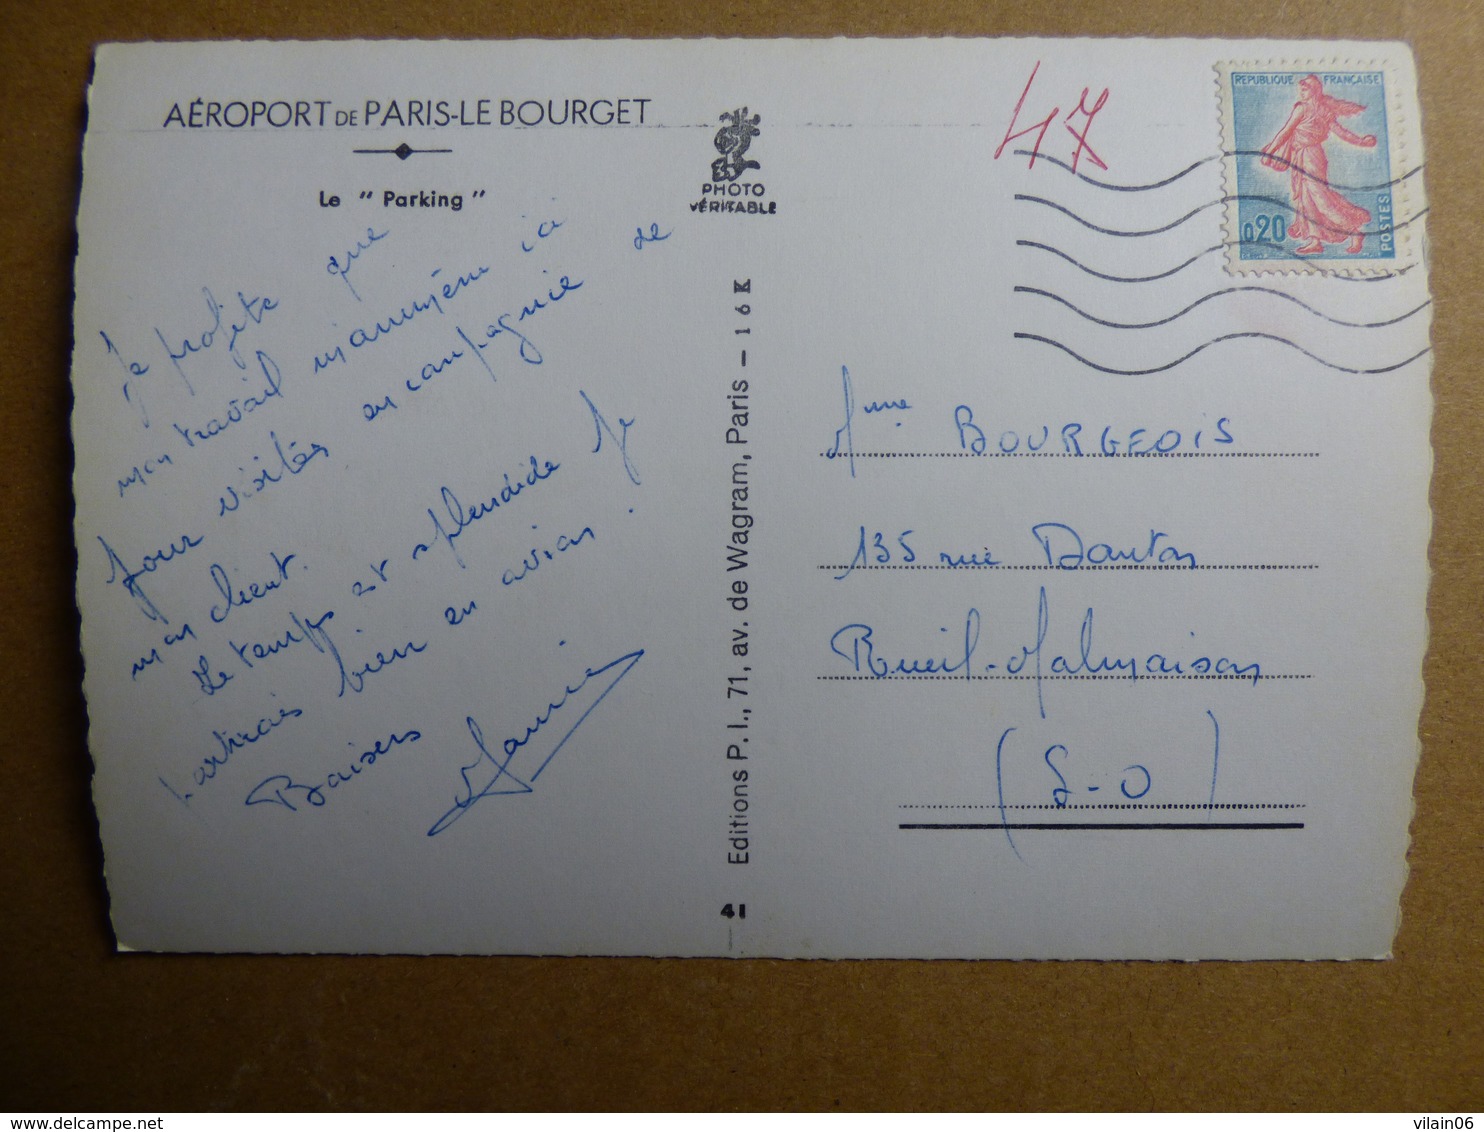 AÉROPORT DE PARIS-LE BOURGET
Le " Parking "
PHOTO
VÉRITABLE
Je profite que
mon travail m'ammène ici
pour visites en compagnie de
mon client.
Le temps est splendide Je
partirais bien en avion !
Baisers
Editions P. I., 71, av. de Wagram, Paris – 16 K
41
47
REPUBLIQUE FRANÇAISE
0,20
POSTES
Mme BOURGEOIS
135 rue Danton
Rueil-Malmaison
(S-O)
vilain06